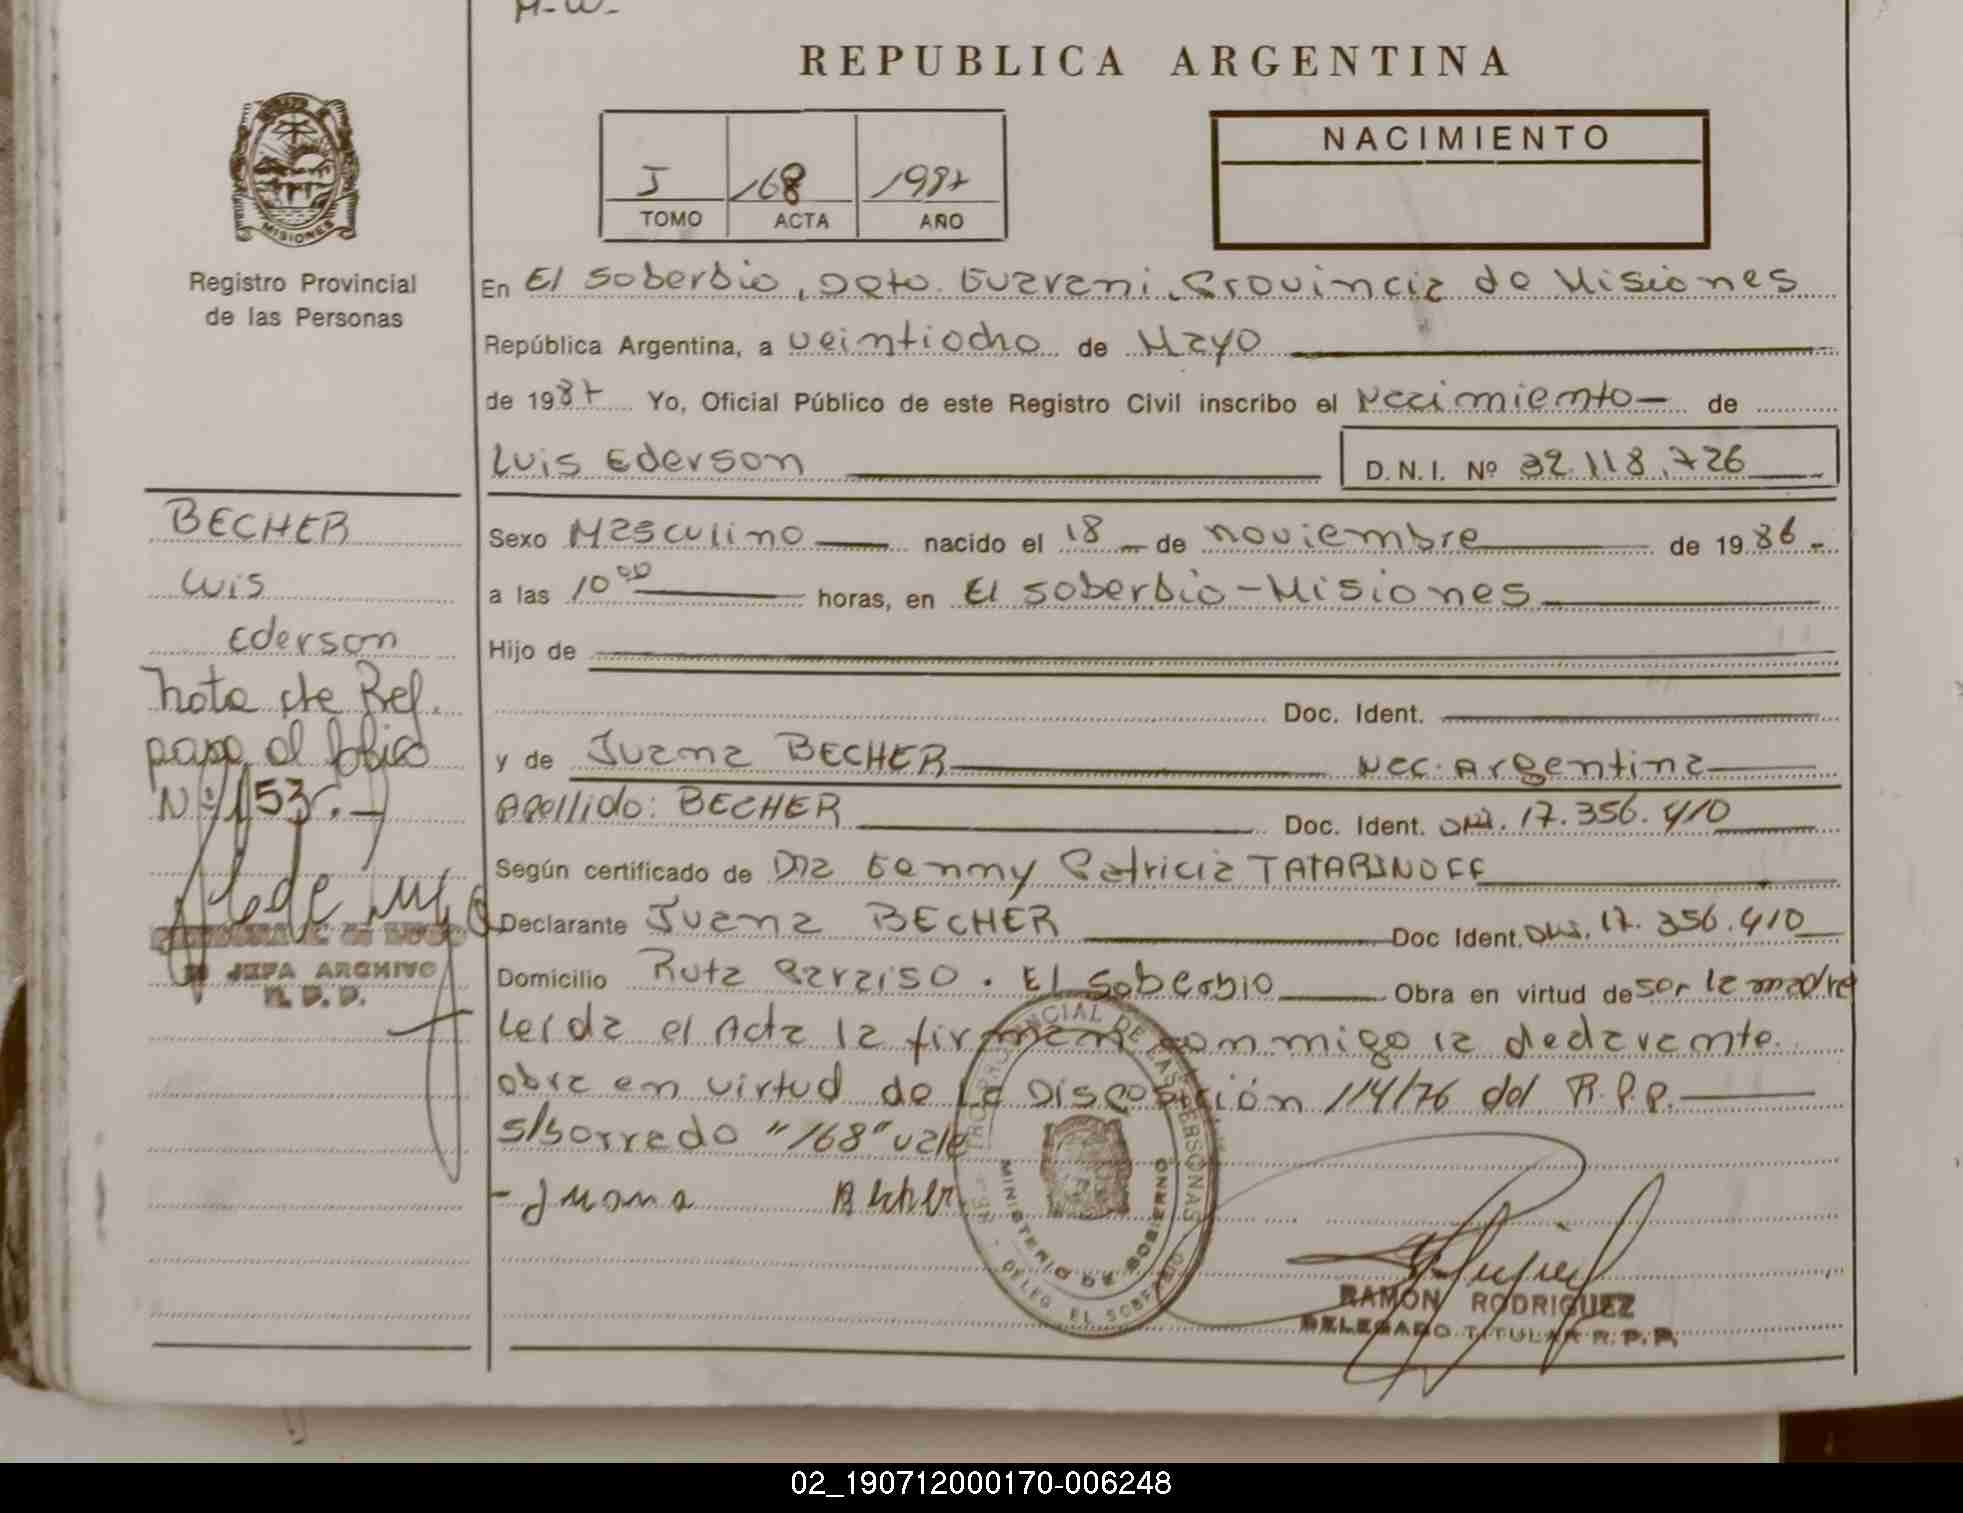 H-W-
REPUBLICA ARGENTINA
J 168 1987
TOMO ACTA AÑO
NACIMIENTO
MISIONES
Registro Provincial
de las Personas
En El Soberbio, Dpto. Guarani, Provincia de Misiones
República Argentina, a veintiocho de Mayo
de 1987 Yo, Oficial Público de este Registro Civil inscribo el Nacimiento de
Luis Ederson D.N.I. Nº 32.118.726
BECHER
Luis
Ederson
Nota de Ref.
pasa al folio
Nº 153.-
JEFA ARCHIVO
R. P. P.
Sexo Masculino nacido el 18 de noviembre de 1986-
a las 10 00 horas, en El Soberbio-Misiones
Hijo de
Doc. Ident.
y de Juana BECHER Nac. Argentina
Apellido: BECHER Doc. Ident. DNI. 17.356.410
Según certificado de Dra Fanny Patricia TATARINOFF
Declarante Juana BECHER Doc Ident. DNI. 17.356.410
Domicilio Ruta Paraiso. El Soberbio Obra en virtud de ser la madre
Leida el Acta la firman conmigo la declarante
obra en virtud de la Disposición 114/76 del R.P.P.
s/borrado "168" vale
- Juana Becher
MINISTERIO DE GOBIERNO
DELEG. EL SOBERBIO
RAMON RODRIGUEZ
DELEGADO TITULAR R.P.P.
02_190712000170-006248